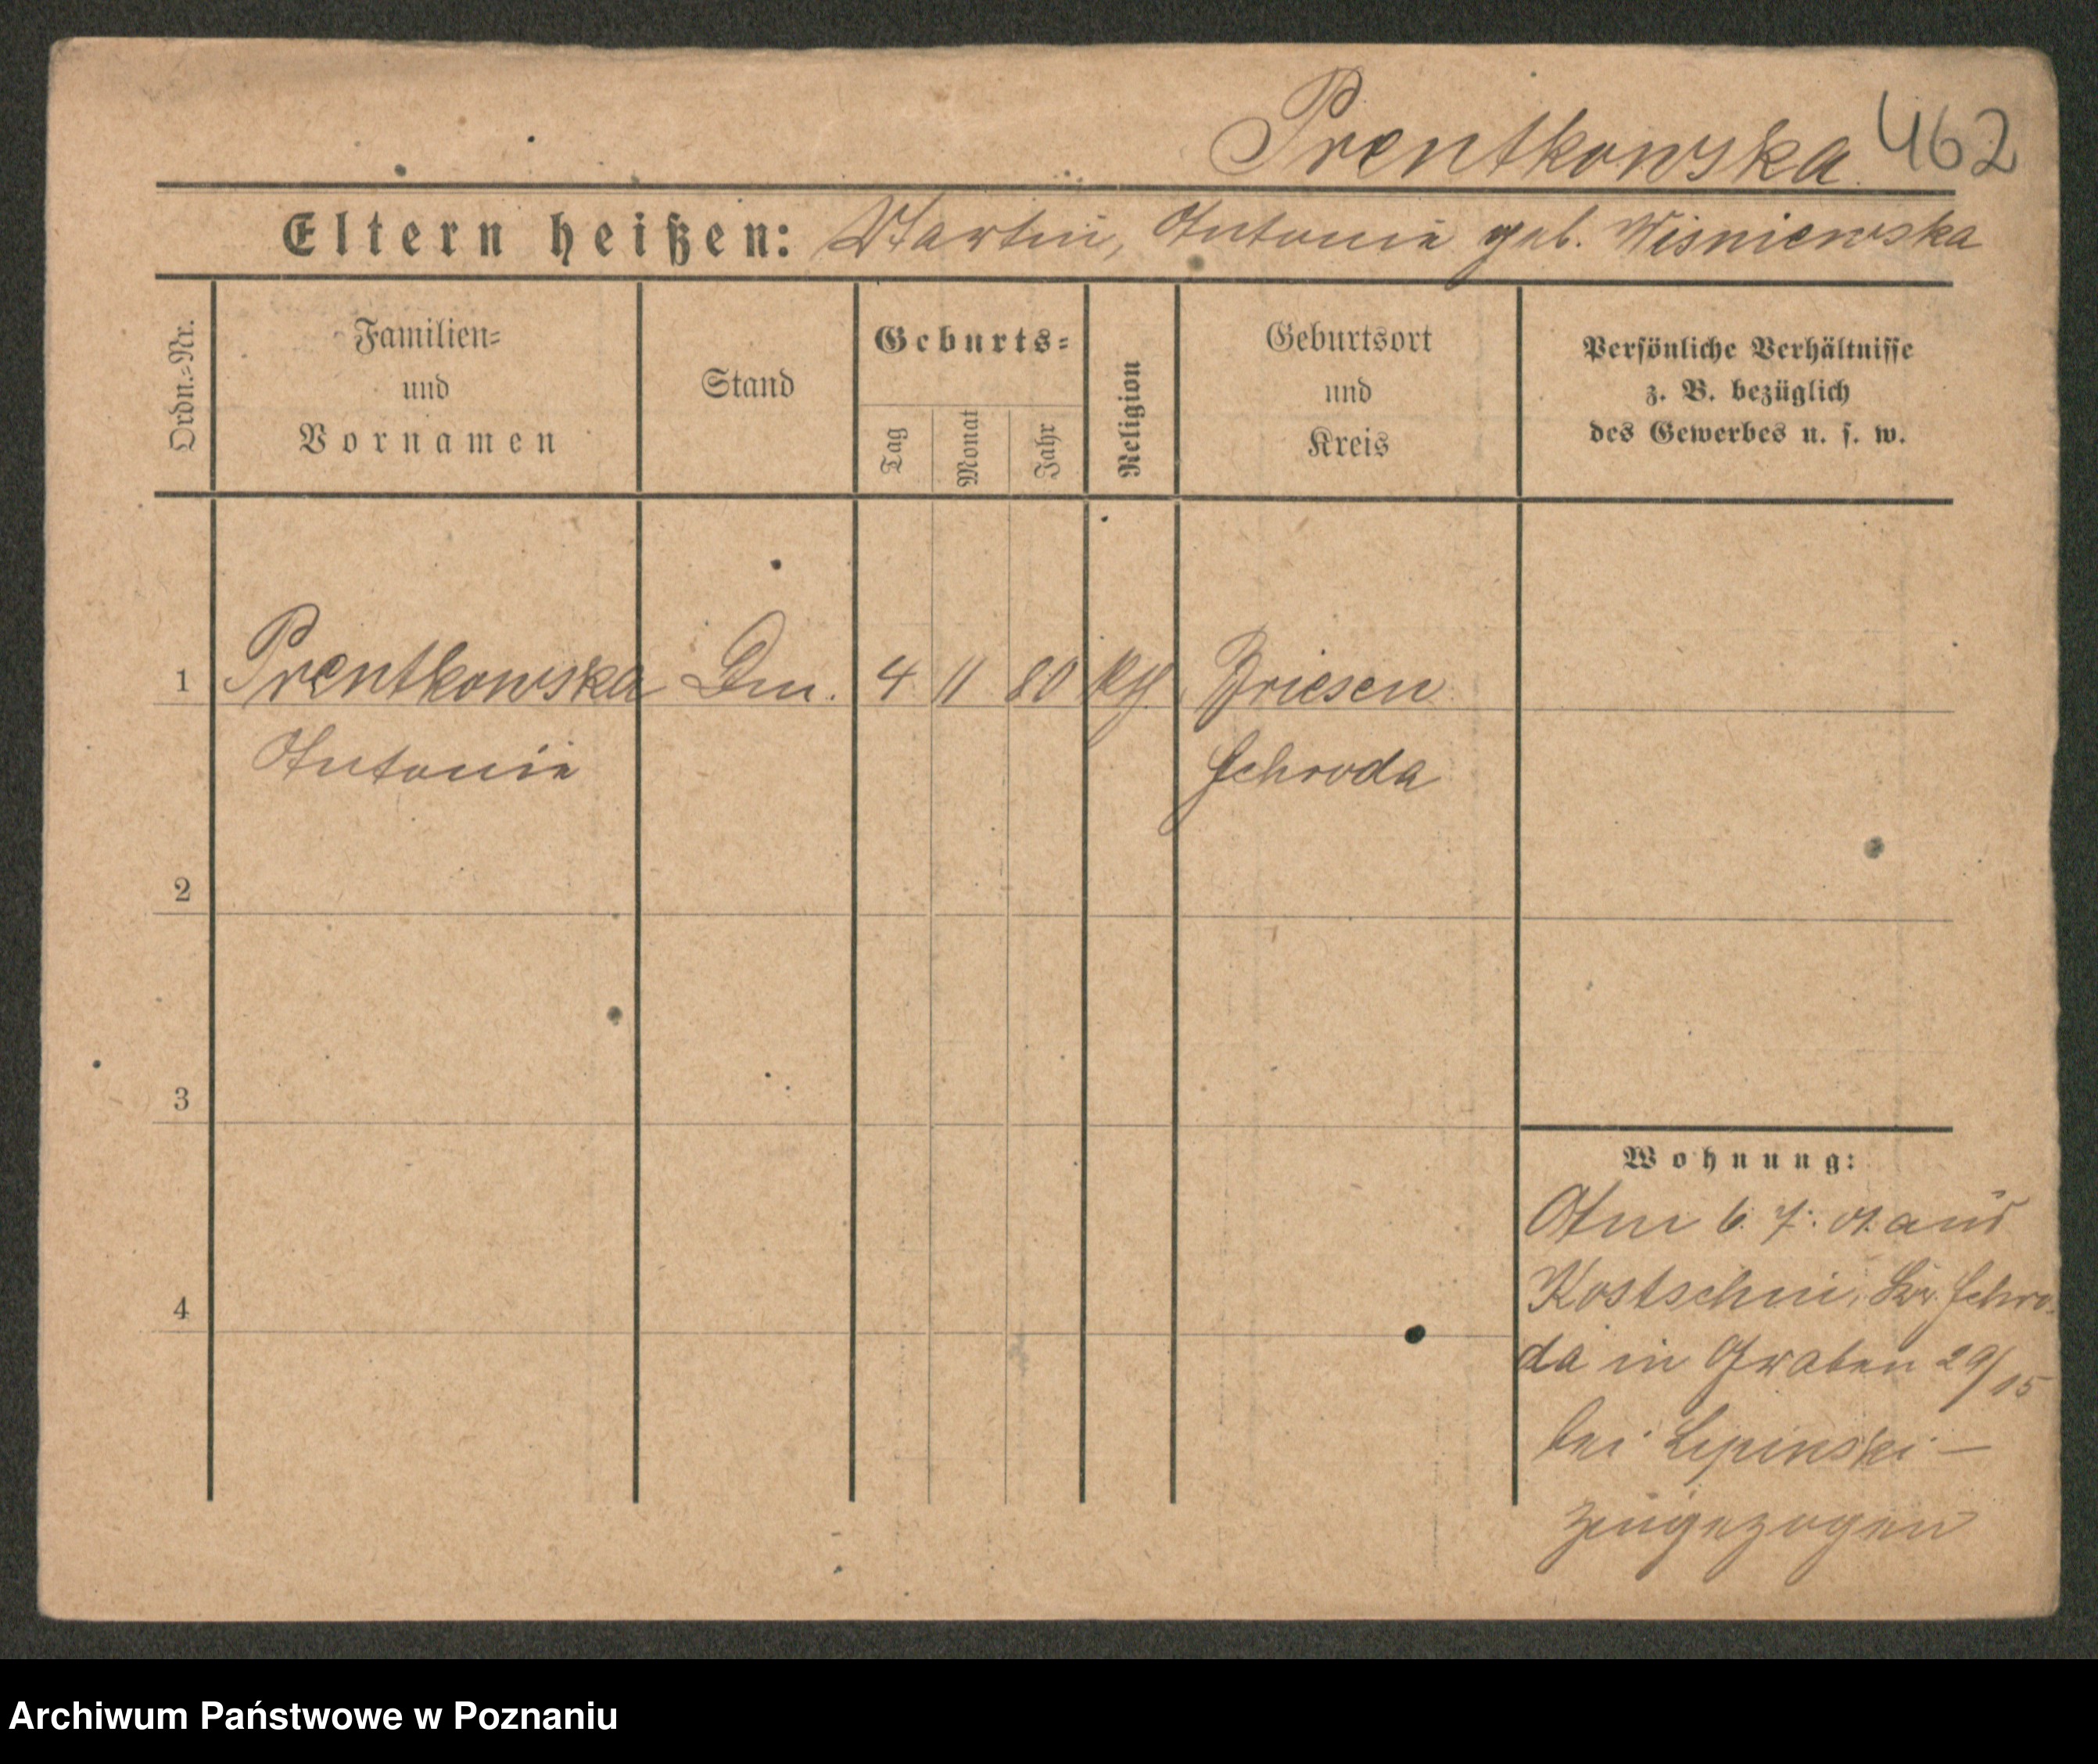 Prentkowska 462
Eltern heißen: Martin, Antonie geb. Wisniewska
Ordn.-Nr.
Familien-
und
Vornamen
Stand
Geburts-
Tag
Monat
Jahr
Religion
Geburtsort
und
Kreis
Persönliche Verhältnisse
z. B. bezüglich
des Gewerbes u. s. w.
1 Prentkowska 4 11 80 kth. Briesen
Antonie Schroda
2
3
4
Wohnung:
Am 6. 7. 01. aus
Kostschin, Kr. Schro-
da in Graben 29/15
bei Lipinski –
zugezogen
Archiwum Państwowe w Poznaniu